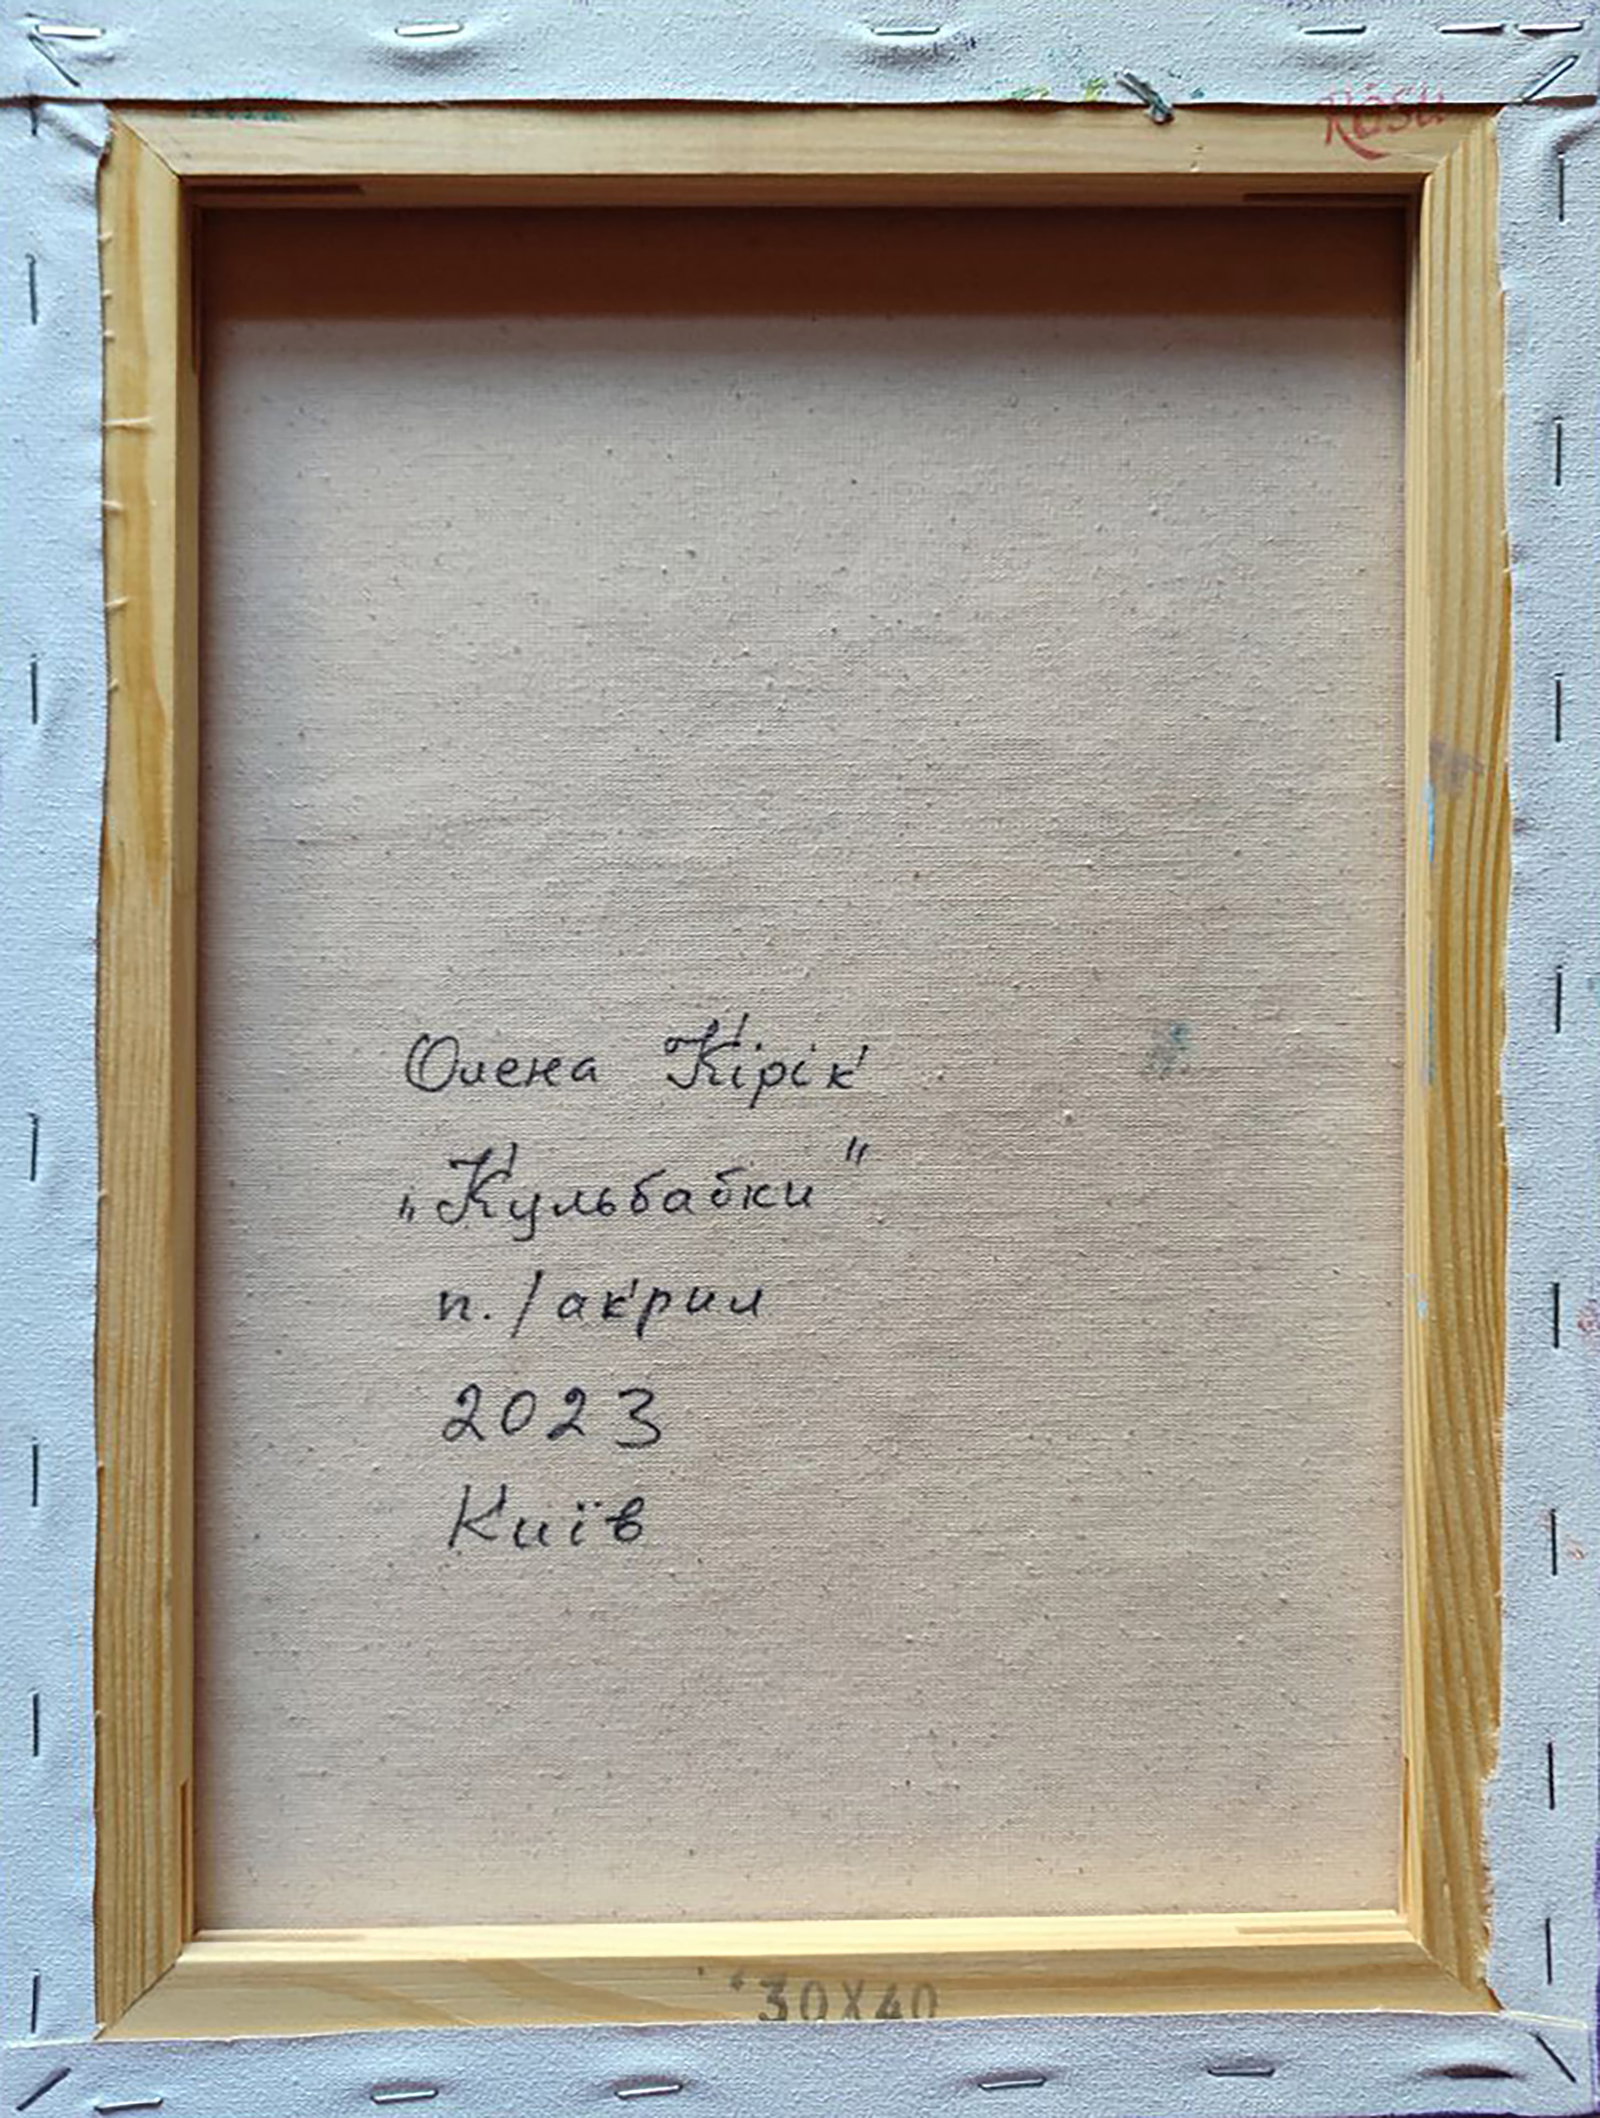 Rosa
Олена Кірік
„Кульбабки"
п./акрил
2023
Київ
30X40